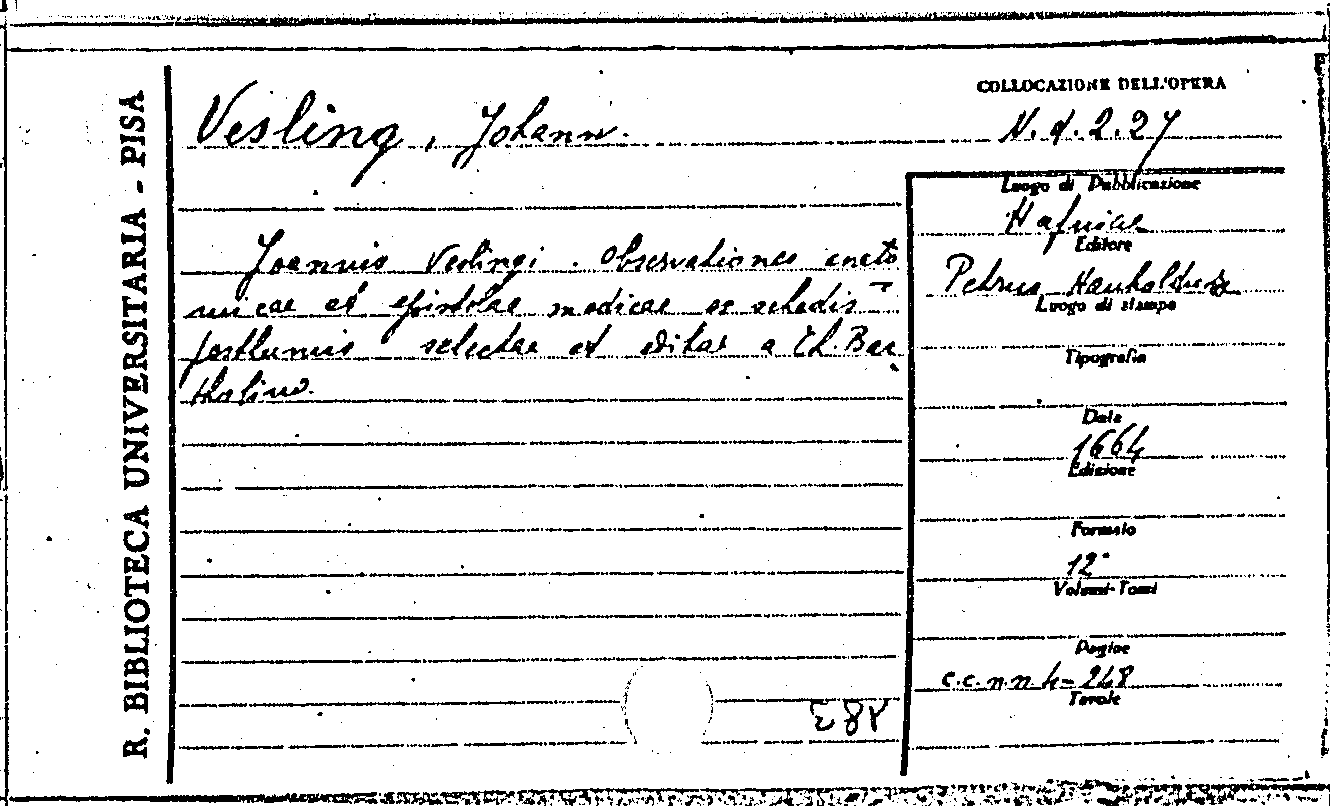 R. BIBLIOTECA UNIVERSITARIA - PISA
COLLOCAZIONE DELL'OPERA
Vesling, Johann.
N. d. 2. 27
Luogo di Pubblicazione
Hafniae
Editore
Petrus Hauboldus
Luogo di stampa
Tipografia
Data
1664
Edizione
Formato
12°
Volumi-Tomi
Pagine
c.c.n.n. 4-248
Tavole
Joannis Veslingi. Observationes anato
micae et epistolae medicae ex schedis
posthumis selectae et editae a Th. Bar
tholino.